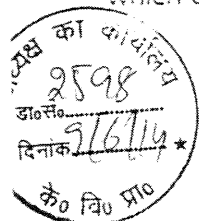 यक्ष का कार्यालय
2598
डा०सं०
दिनांक 9/6/14 ★
के० वि० प्रा०